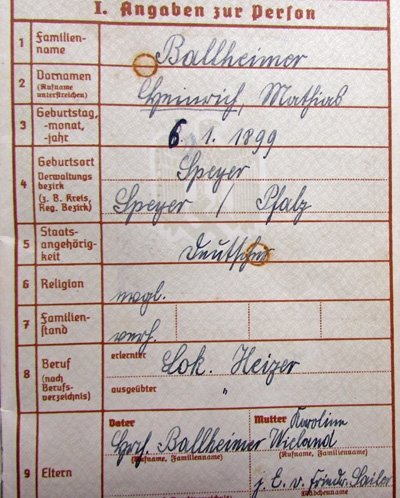 I. Angaben zur Person
1 Familien-
name
Ballheimer
2 Vornamen
(Rufname
unterstreichen)
Heinrich, Mathias
3 Geburtstag,
-monat,
-jahr
6. 1. 1899
4 Geburtsort
Verwaltungs
bezirk
(z. B. Kreis,
Reg. Bezirk)
Speyer
Speyer / Pfalz
5 Staats-
angehörig-
keit
Deutscher
6 Religion
7 Familien-
stand
verh.
8 Beruf
(nach
Berufs-
verzeichnis)
erlernter Lok. Heizer
ausgeübter "
9 Eltern
Vater
Ballheimer
(Rufname, Familienname)
Mutter Karoline
Wieland
(Rufname, Familienname)
z. E. v. Friedr. Sailer